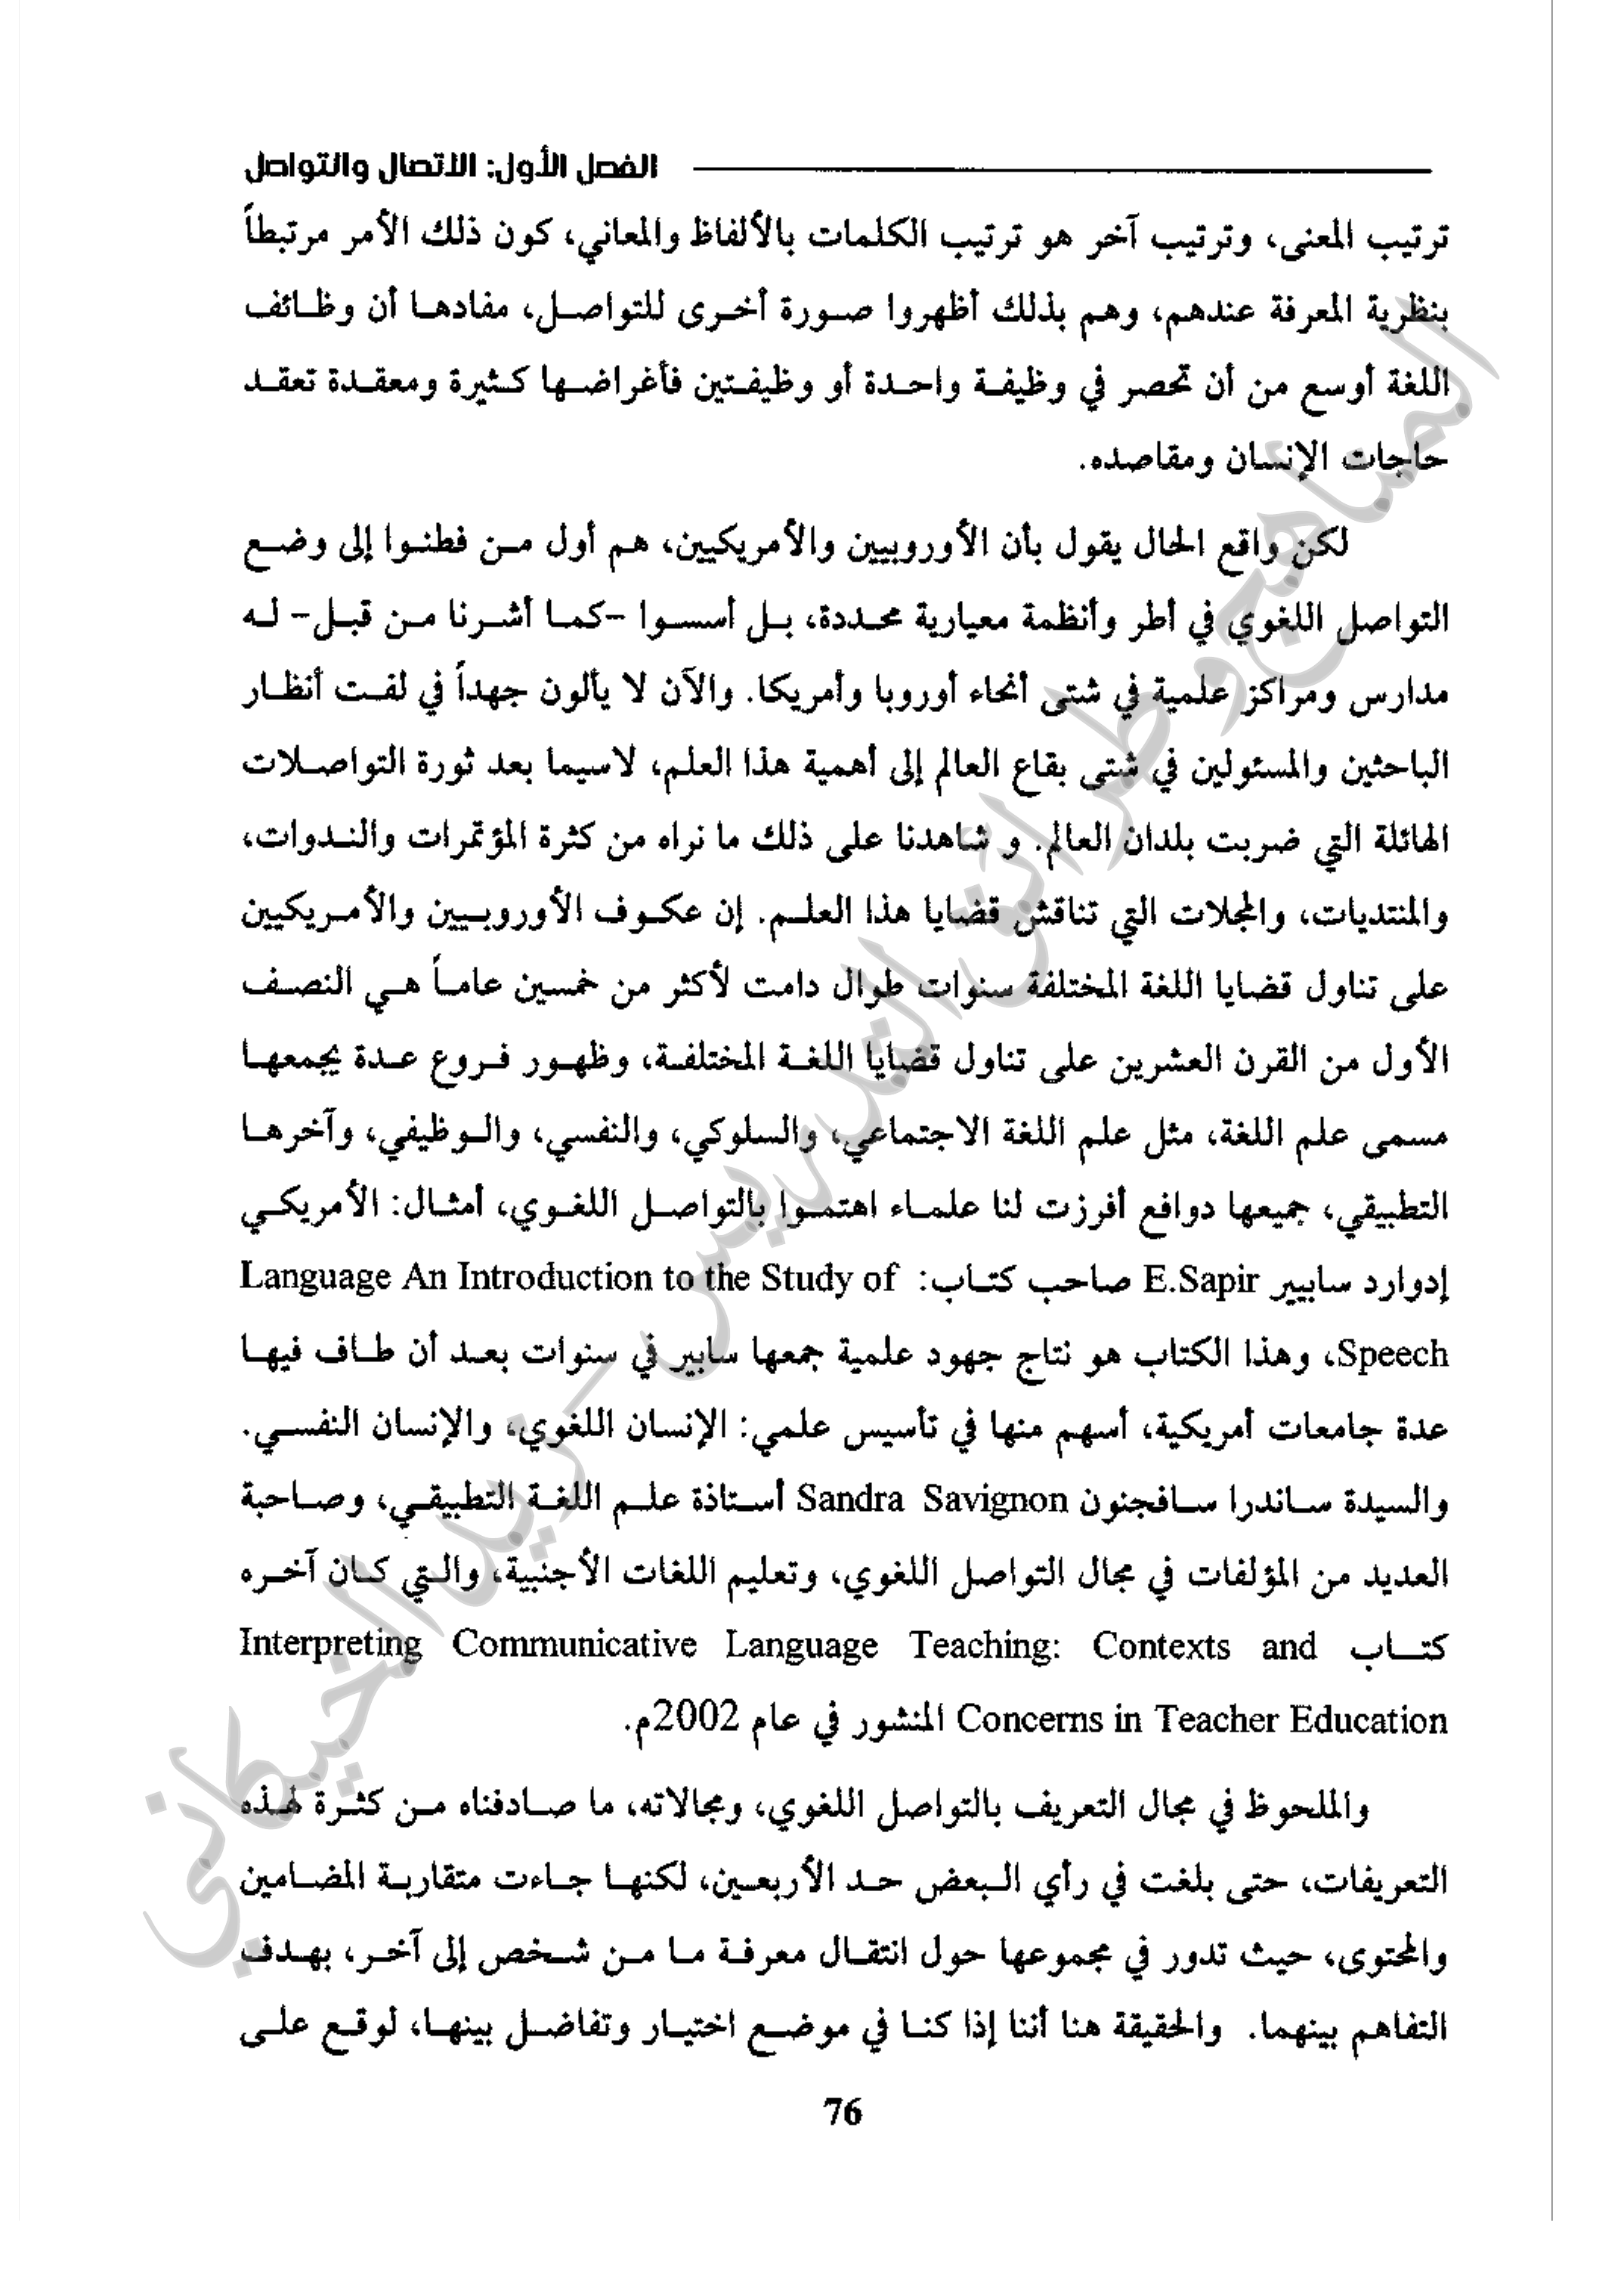 الفصل الأول: الاتصال والتواصل
ترتيب المعنى، وترتيب آخر هو ترتيب الكلمات بالألفاظ والمعاني، كون ذلك الأمر مرتبطاً
بنظرية المعرفة عندهم، وهم بذلك أظهروا صورة أخرى للتواصل، مفادها أن وظائف
اللغة أوسع من أن تحصر في وظيفة واحدة أو وظيفتين فأغراضها كثيرة ومعقدة تعقد
حاجات الإنسان ومقاصده.
لكن واقع الحال يقول بأن الأوروبيين والأمريكيين، هم أول من فطنوا إلى وضع
التواصل اللغوي في أطر وأنظمة معيارية محددة، بل أسسوا -كما أشرنا من قبل- له
مدارس ومراكز علمية في شتى أنحاء أوروبا وأمريكا. والآن لا يألون جهداً في لفت أنظار
الباحثين والمسئولين في شتى بقاع العالم إلى أهمية هذا العلم، لاسيما بعد ثورة التواصلات
الهائلة التي ضربت بلدان العالم. و شاهدنا على ذلك ما نراه من كثرة المؤتمرات والندوات،
والمنتديات، والمجلات التي تناقش قضايا هذا العلم. إن عكوف الأوروبيين والأمريكيين
على تناول قضايا اللغة المختلفة سنوات طوال دامت لأكثر من خمسين عاماً هي النصف
الأول من القرن العشرين على تناول قضايا اللغة المختلفة، وظهور فروع عدة يجمعها
مسمى علم اللغة، مثل علم اللغة الاجتماعي، والسلوكي، والنفسي، والوظيفي، وآخرها
التطبيقي، جميعها دوافع أفرزت لنا علماء اهتموا بالتواصل اللغوي، أمثال: الأمريكي
إدوارد سابيير E.Sapir صاحب كتاب: Language An Introduction to the Study of
Speech، وهذا الكتاب هو نتاج جهود علمية جمعها سابير في سنوات بعد أن طاف فيها
عدة جامعات أمريكية، أسهم منها في تأسيس علمي: الإنسان اللغوي، والإنسان النفسي.
والسيدة ساندرا سافجنون Sandra Savignon أستاذة علم اللغة التطبيقي، وصاحبة
العديد من المؤلفات في مجال التواصل اللغوي، وتعليم اللغات الأجنبية، والتي كان آخره
كتاب Interpreting Communicative Language Teaching: Contexts and
Concerns in Teacher Education المنشور في عام 2002م.
والملحوظ في مجال التعريف بالتواصل اللغوي، ومجالاته، ما صادفناه من كثرة لهذه
التعريفات، حتى بلغت في رأي البعض حد الأربعين، لكنها جاءت متقاربة المضامين
والمحتوى، حيث تدور في مجموعها حول انتقال معرفة ما من شخص إلى آخر، بهدف
التفاهم بينهما. والحقيقة هنا أننا إذا كنا في موضع اختيار وتفاضل بينها، لوقع على
76